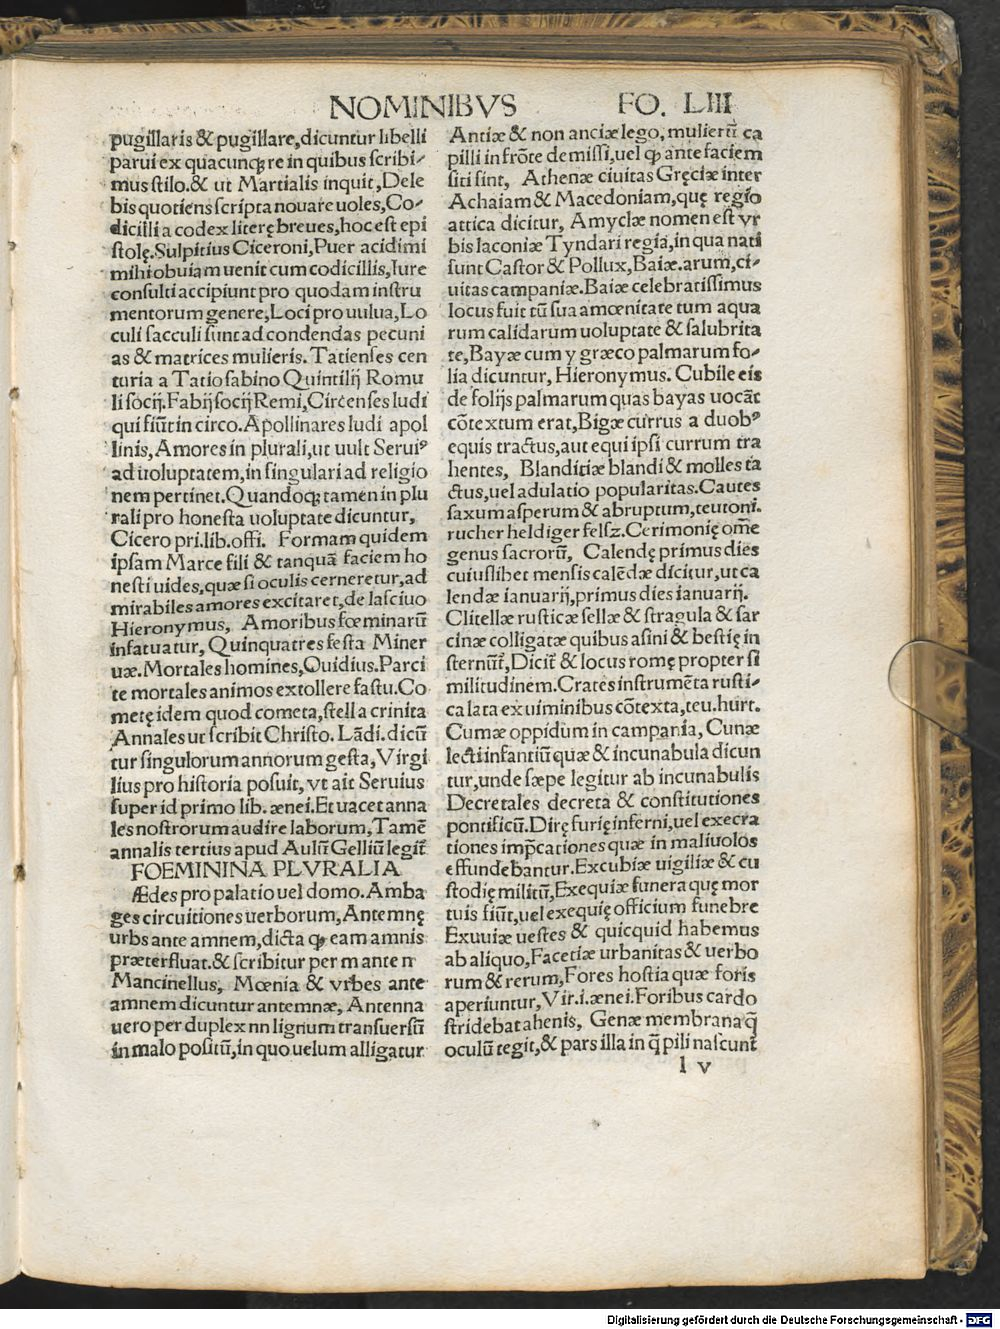 NOMINIBVS FO. LIII
pugillaris & pugillare,dicuntur libelli
parui ex quacunqꝫ re in quibus ſcribi-
mus ſtilo.& ut Martialis inquit,Dele
bis quotiens ſcripta nouare uoles,Co-
dicilli a codex literę breues,hoc eſt epi
ſtolę.Sulpitius Ciceroni,Puer acidimi
mihi obuiam uenit cum codicillis,Iure
conſulti accipiunt pro quodam inſtru
mentorum genere,Loci pro uulua,Lo
culi ſacculi ſunt ad condendas pecuni
as & matrices mulieris.Tatienſes cen
turia a Tatio ſabino Quintilij Romu
li ſocij.Fabij ſocij Remi,Circenſes ludi
qui fiūt in circo.Apollinares ludi apol
linis,Amores in plurali,ut uult Seruiꝰ
ad uoluptatem,in ſingulari ad religio
nem pertinet.Quandoqꝫ tamen in plu
rali pro honeſta uoluptate dicuntur,
Cicero pri.lib.offi. Formam quidem
ipſam Marce fili & tanquā faciem ho
neſti uides,quæ ſi oculis cerneretur,ad
mirabiles amores excitaret,de laſciuo
Hieronymus, Amoribus fœminarū
infatuatur, Quinquatres feſta Miner
uæ.Mortales homines,Ouidius.Parci
te mortales animos extollere faſtu.Co
metę idem quod cometa,ſtella crinita
Annales ut ſcribit Chriſto. Lādi.dicū
tur ſingulorum annorum geſta,Virgi
lius pro hiſtoria poſuit,vt ait Seruius
ſuper id primo lib.ænei.Et uacet anna
les noſtrorum audire laborum,Tamē
annalis tertius apud Aulū Gelliū legit̄
FOEMININA PLVRALIA
Ædes pro palatio uel domo.Amba
ges circuitiones uerborum,Antemnę
urbs ante amnem,dicta ꝙ eam amnis
præterfluat.& ſcribitur per m ante n
Mancinellus, Mœnia & vrbes ante
amnem dicuntur antemnæ, Antenna
uero per duplex nn lignum tranſuerſū
in malo poſitū,in quo uelum alligatur
Antiæ & non anciæ lego,mulierū ca
pilli in frōte demiſſi,uel ꝙ ante faciem
ſiti ſint, Athenæ ciuitas Gręciæ inter
Achaiam & Macedoniam,quę regio
attica dicitur, Amyclæ nomen eſt vr
bis laconiæ Tyndari regia,in qua nati
ſunt Caſtor & Pollux,Baiæ.arum,ci-
uitas campaniæ.Baiæ celebratiſſimus
locus fuit tū ſua amœnitate tum aqua
rum calidarum uoluptate & ſalubrita
te,Bayæ cum y græco palmarum fo-
lia dicuntur, Hieronymus. Cubile eis
de folijs palmarum quas bayas uocāt
cōtextum erat,Bigæ currus a duobꝰ
equis tractus,aut equi ipſi currum tra
hentes, Blanditiæ blandi & molles ta
ctus,uel adulatio popularitas.Cautes
ſaxum aſperum & abruptum,teutoni.
rucher heldiger felſz.Cerimonię om̄e
genus ſacrorū, Calendę primus dies
cuiuſlibet menſis calēdæ dicitur,ut ca
lendæ ianuarij,primus dies ianuarij.
Clitellæ ruſticæ ſellæ & ſtragula & ſar
cinæ colligatæ quibus aſini & beſtię in
ſternūt̄,Dicit̄ & locus romę propter ſi
militudinem.Crates inſtrumēta ruſti-
ca lata ex uiminibus cōtexta,teu.hurt.
Cumæ oppidum in campania, Cunæ
lecti infantiū quæ & incunabula dicun
tur,unde ſæpe legitur ab incunabulis
Decretales decreta & conſtitutiones
pontificū.Dirę furię inferni,uel execra
tiones imp̄cationes quæ in maliuolos
effundebantur.Excubiæ uigiliæ & cu
ſtodię militū,Exequiæ funera quę mor
tuis fiūt,uel exequię officium funebre
Exuuiæ ueſtes & quicquid habemus
ab aliquo,Facetiæ urbanitas & uerbo
rum & rerum,Fores hoſtia quæ foris
aperiuntur,Vir.i.ænei.Foribus cardo
ſtridebat ahenis, Genæ membrana q̄
oculū tegit,& pars illa in q̄ pili naſcunt̄
l v
Digitalisierung gefördert durch die Deutsche Forschungsgemeinschaft - DFG